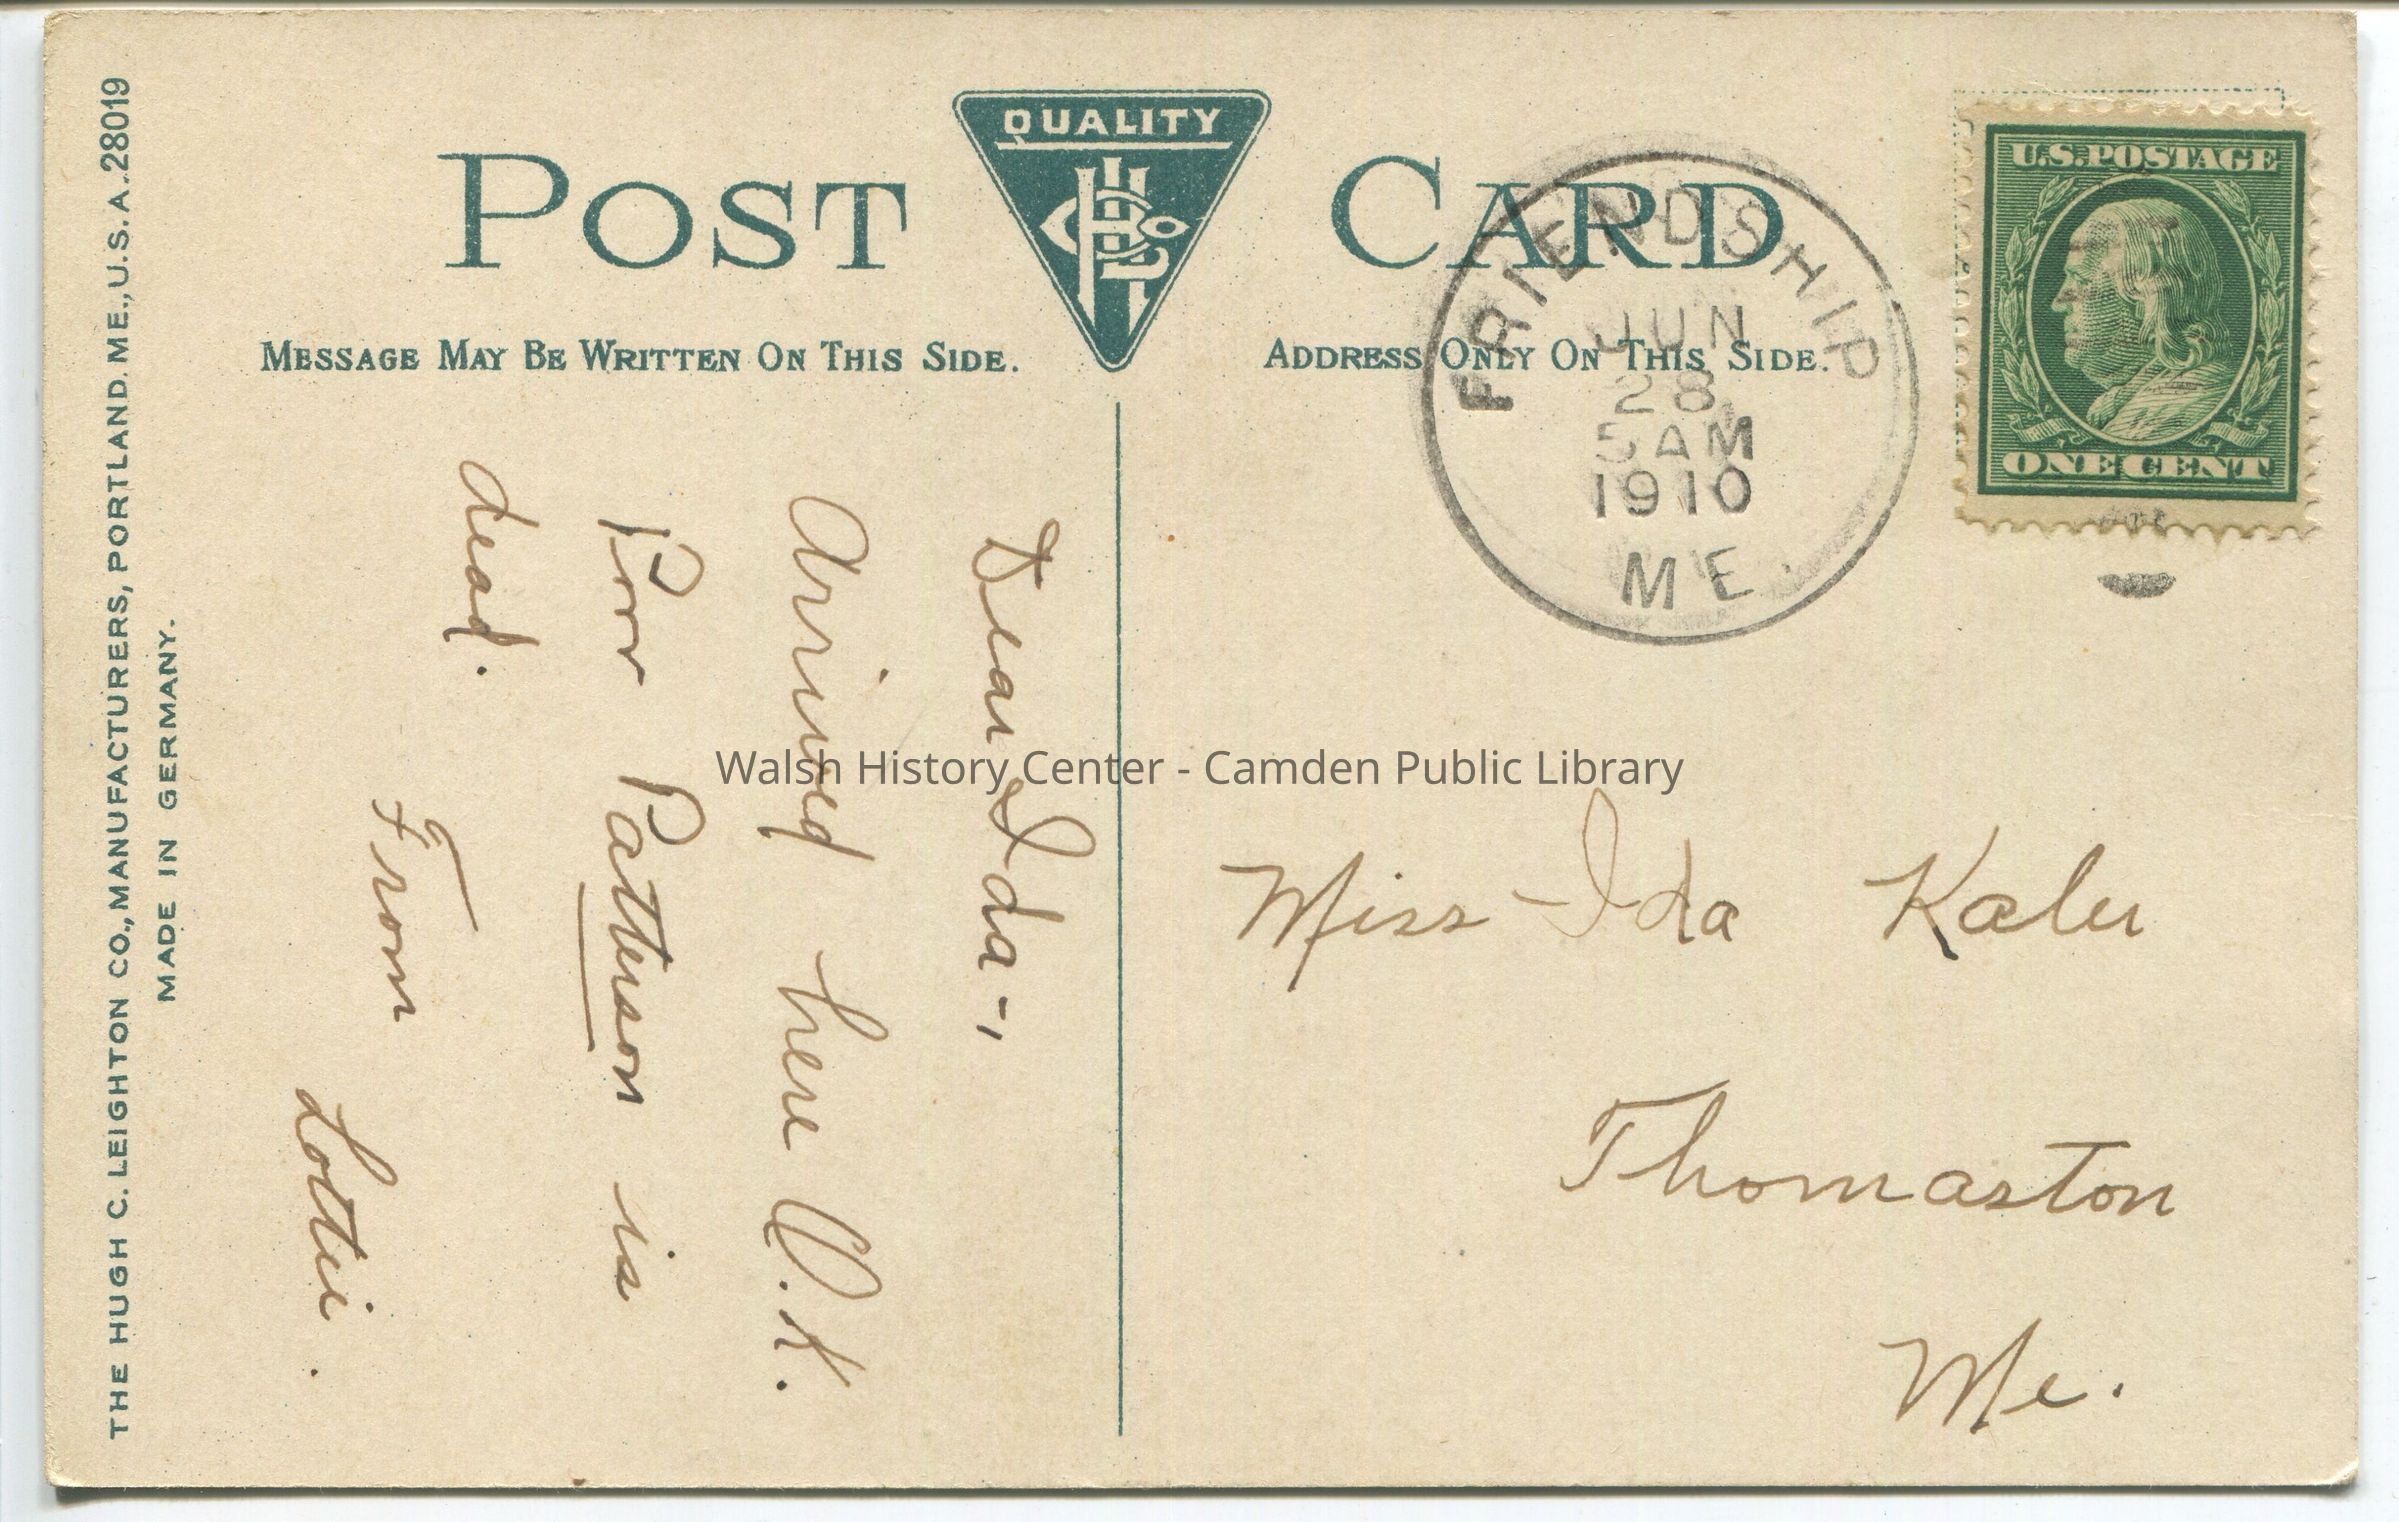 THE HUGH C. LEIGHTON CO., MANUFACTURERS, PORTLAND, ME., U.S.A. 28019
MADE IN GERMANY.
POST CARD
QUALITY
MESSAGE MAY BE WRITTEN ON THIS SIDE.
ADDRESS ONLY ON THIS SIDE.
FRIENDSHIP
JUN
28
5 AM
1910
ME.
U.S. POSTAGE
ONE CENT
Dear Ida-,
Arrived here O.K.
Poor Patterson is
dead.
From
Lottie.
Miss Ida Kaler
Thomaston
Me.
Walsh History Center - Camden Public Library